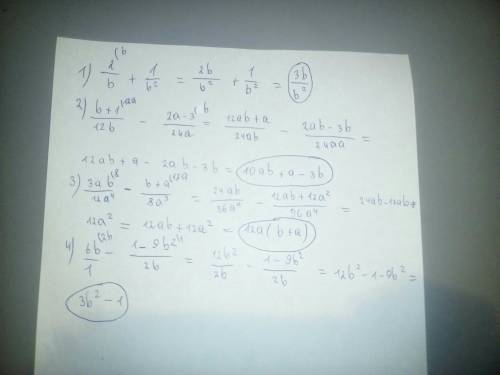 1) 2(b/b + 1/b² = 2b/b² + 1/b² = 3b/b²
2) b+1(2a/12b - 2a-3(b/24a = 12ab+a/24ab - 2ab-3b/24aa =
12ab+a-2ab-3b = 10ab+a-3b
3) 3ab(8/12a⁴ - b+a(12a/8a³ = 24ab/96a⁴ - 12ab+12a²/96a⁴ = 24ab-12ab+
12a² = 12ab+12a² = 12a(b+a)
4) 6b(2b/1 - 1-9b²(1/2b = 12b²/2b - 1-9b²/2b = 12b²-1-9b² =
3b²-1